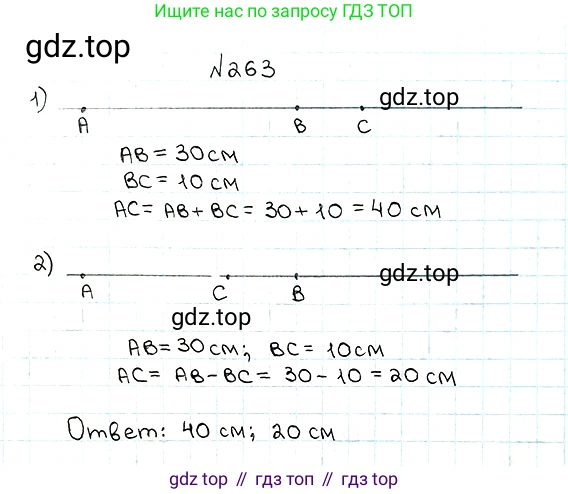 Ищите нас по запросу ГДЗ ТОП
gdz.top
№263
1)
gdz.top
A B C
AB = 30 см
BC = 10 см
AC = AB + BC = 30 + 10 = 40 см
2)
gdz.top
A C B
gdz.top
AB = 30 см; BC = 10 см
AC = AB - BC = 30 - 10 = 20 см
Ответ: 40 см; 20 см
gdz top // гдз топ // gdz top // гдз топ